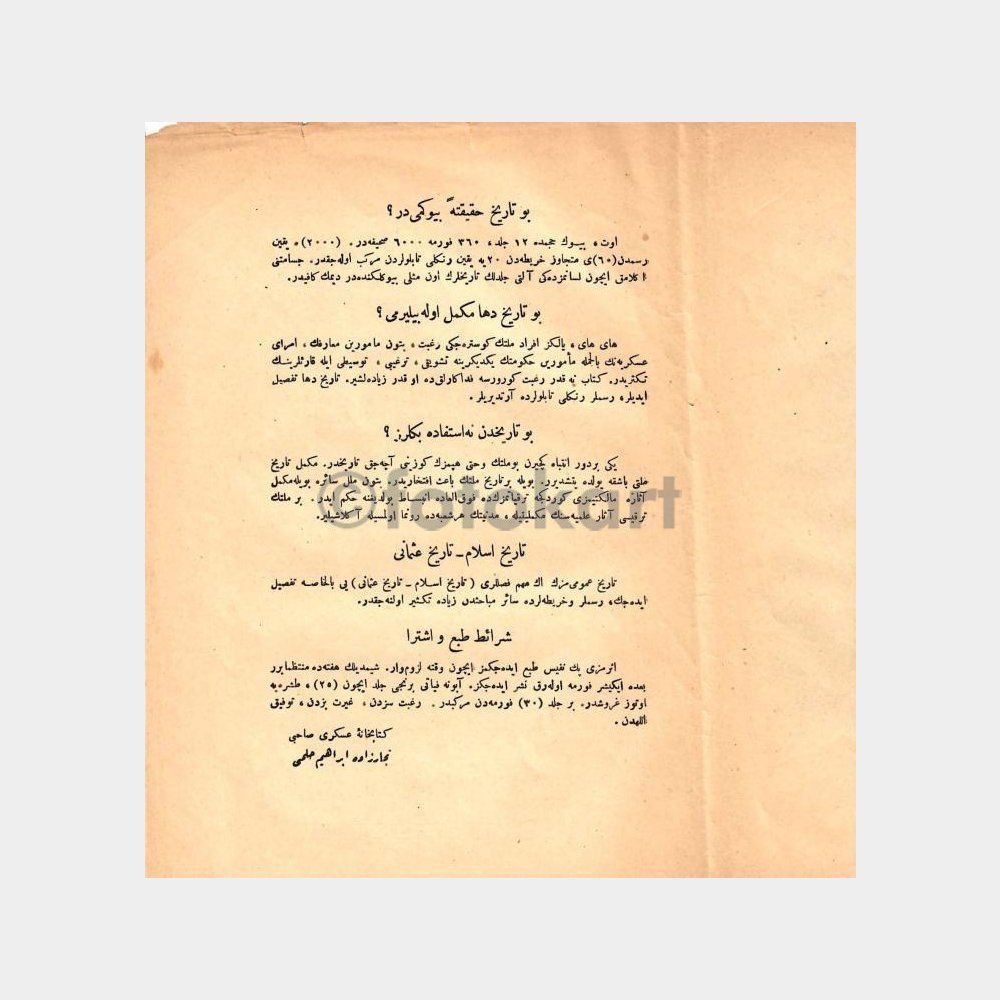 بو تاریخ حقیقتهً بیوکمی‌در ؟
اوت، بیـوك حجمده ۱۲ جلد، ۳۶۰ فورمه ۶۰۰۰ صحیفه‌در . (۲۰۰۰)ه یقین
رسمدن (۶۰)ی متجاوز خریطه‌دن ۲۰یه یقین رنکلی تابلولردن مرکب اوله‌جقدر. جسامتنی
اکلامق ایچون لسانمزده‌کی آلتی جلدلك تاریخلرك اون مثلی بیوکلکنده‌در دیمك کافیدر.
بو تاریخ دها مکمل اوله‌بیلیرمی ؟
های های، یالکز افراد ملتك کوستره‌جکی رغبت، بتون مامورین معارفك، امرای
عسکریه‌نك بالجمله مأمورین حکومتك یکدیکرینه تشویق، ترغیبی، توسیطی ایله قارئلرینـك
تکثریدر. کتاب نه قدر رغبت کورورسه فداکارلق‌ده او قدر زیاده‌لشیر. تاریخ دها تفصیل
ایدیلر، رسملر رنکلی تابلولرده آرتدیریلر.
بو تاریخدن نه‌استفاده بکلرز ؟
یکی بردور انتباه کچیرن بوملتك وحتی هپمزك کوزینی آچه‌جق تاریخدر. مکمل تاریخ
خلقی باشقه یولده یتشدیرر. بویله بر تاریخ ملتك باعث افتخاریدر. بتون ملل سائره بویله‌مکمل
آثاره مالکیتمزی کوردکجه ترقیاتمزك‌ده فوق‌العاده انبسـاط بولدیغنه حکم ایدر. بر ملتك
ترقیسی آثار علمیه‌سنك مکملیتیله، مدنیتك هرشعبه‌ده رونما اولمسیله آکلاشیلیر.
تاریخ اسلام ـ تاریخ عثمانی
تاریخ عمومی‌مزك اك مهم فصللری (تاریخ اسـلام ـ تاریخ عثمانی) یی بالخاصـه تفصیل
ایده‌جك، رسملر وخریطه‌لرده سائر مباحثدن زیاده تکثیر اولنه‌جقدر.
شرائط طبع و اشترا
اثرمزی پك نفیس طبع ایده‌جکمز ایچون وقته لزوم‌وار. شیمدیلك هفته‌ده منتظمابرر
بعده ایکیشر فورمه اوله‌رق نشر ایده‌جکز. آبونه فیاتی برنجی جلد ایچون (۲۵)، طشره‌یه
اوتوز غروشدر. بر جلد (۳۰) فورمه‌دن مرکبدر. رغبت سزدن، غیرت بزدن، توفیق
اللهدن.
کتابخانهٔ عسکری صاحبی
تجارزاده ابراهیم حلمی
©fotokart